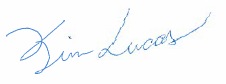 Kim Lucas